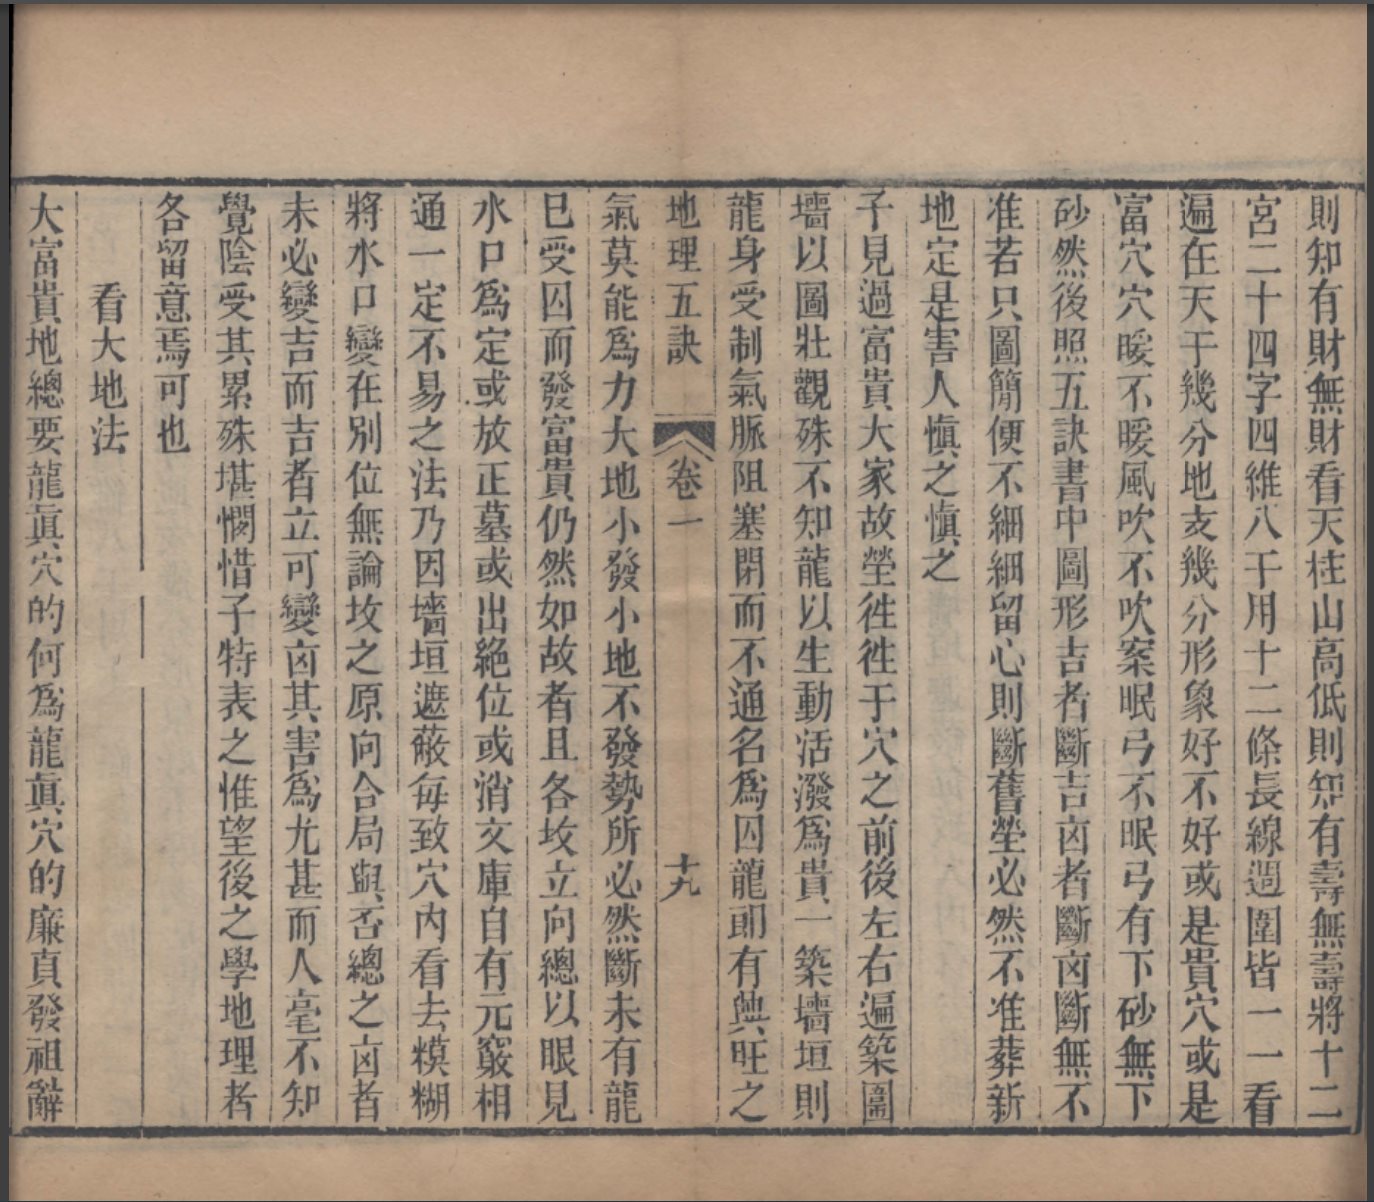 則知有財無財看天柱山高低則知有壽無壽將十二
宮二十四字四維八干用十二條長線週圍皆一一看
遍在天干幾分地支幾分形象好不好或是貴穴或是
富穴穴暖不暖風吹不吹案眠弓不眠弓有下砂無下
砂然後照五訣書中圖形吉者斷吉凶者斷凶斷無不
准若只圖簡便不細細留心則斷舊塋必然不准葬新
地定是害人愼之愼之
子見過富貴大家故塋徃徃于穴之前後左右遍築圍
墻以圖壯觀殊不知龍以生動活潑爲貴一築墻垣則
龍身受制氣脈阻塞閉而不通名爲囚龍即有興旺之
地理五訣 卷一 十九
氣莫能爲力大地小發小地不發勢所必然斷未有龍
已受囚而發富貴仍然如故者且各坟立向總以眼見
水口爲定或放正墓或出絶位或消文庫自有元竅相
通一定不易之法乃因墻垣遮蔽每致穴內看去糢糊
將水口變在別位無論坟之原向合局與否總之凶者
未必變吉而吉者立可變凶其害爲尤甚而人毫不知
覺陰受其累殊堪憫惜子特表之惟望後之學地理者
各留意焉可也
看大地法
大富貴地總要龍眞穴的何爲龍眞穴的廉貞發祖辭